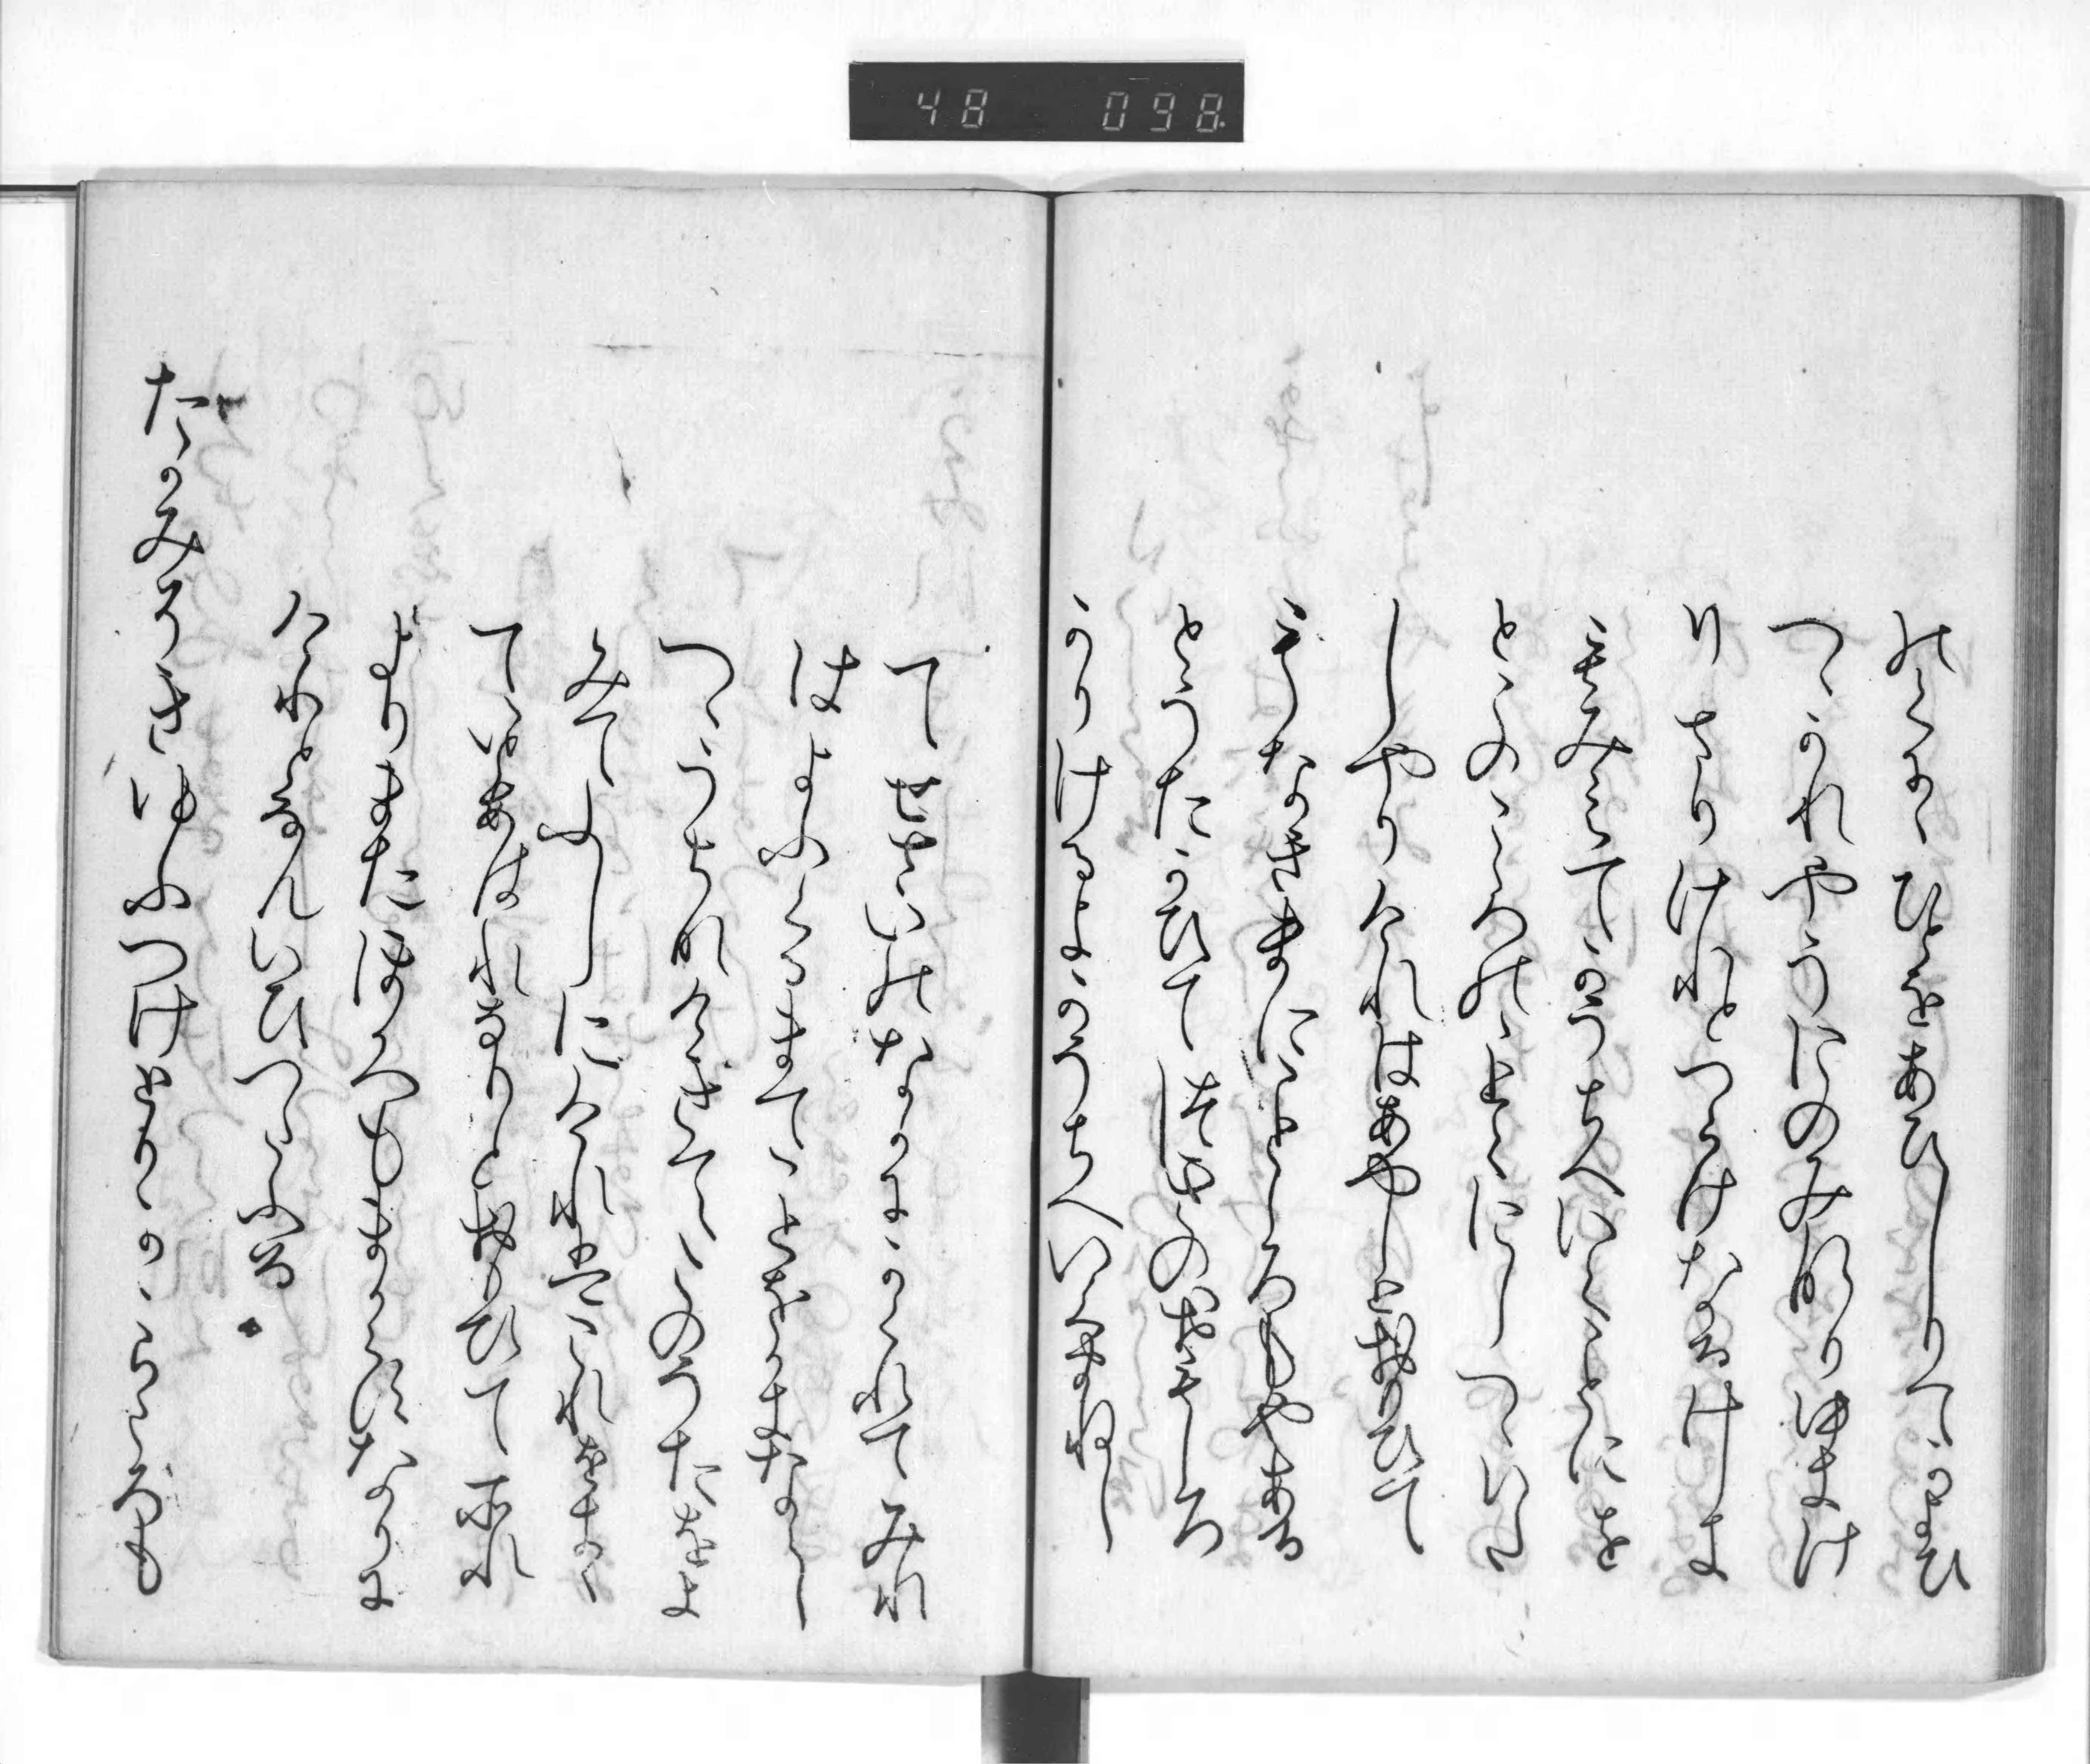 48 098
のくにゝひとをあひしりてかよひ
つゝかれやうにのみなりゆきけ
りさりけれとつらけなるけしき
もみえてかうちへいくことにを
とこのこゝろのことくにしつゝいた
しやりけれはあやしとおもひて
もしなきまにことこゝろもやある
とうたかひて月のおもしろ
かりけるよかうちへいくまねし
てせさいのなかにかくれてみれ
はよふくるまてことをかきならし
つゝうちなけきてこのうたをよ
みてふしにけれはこれをきゝ
ていとあはれなりとおもひてそれ
よりまたほかへもまからすなりに
けりとなんいひつたふる
たかみそきゆふつけとりかからころも